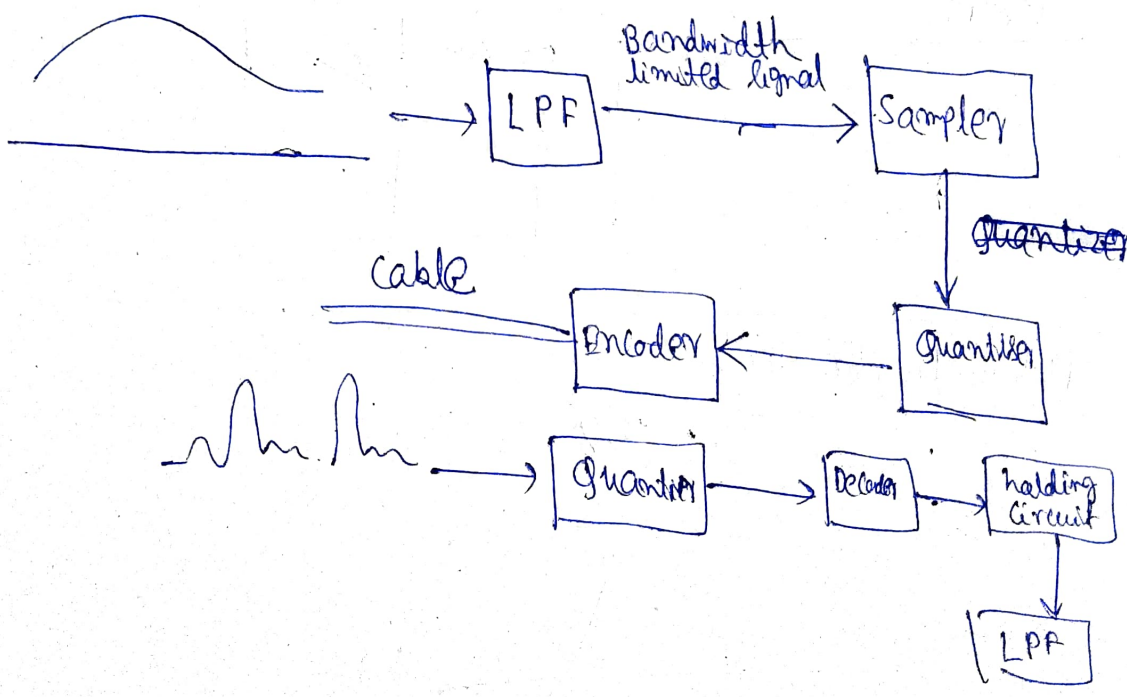 Bandwidth
limited signal
LPF
Sampler
Quantizer
Cable
Encoder
Quantiser
Quantier
Decoder
holding
circuit
LPF